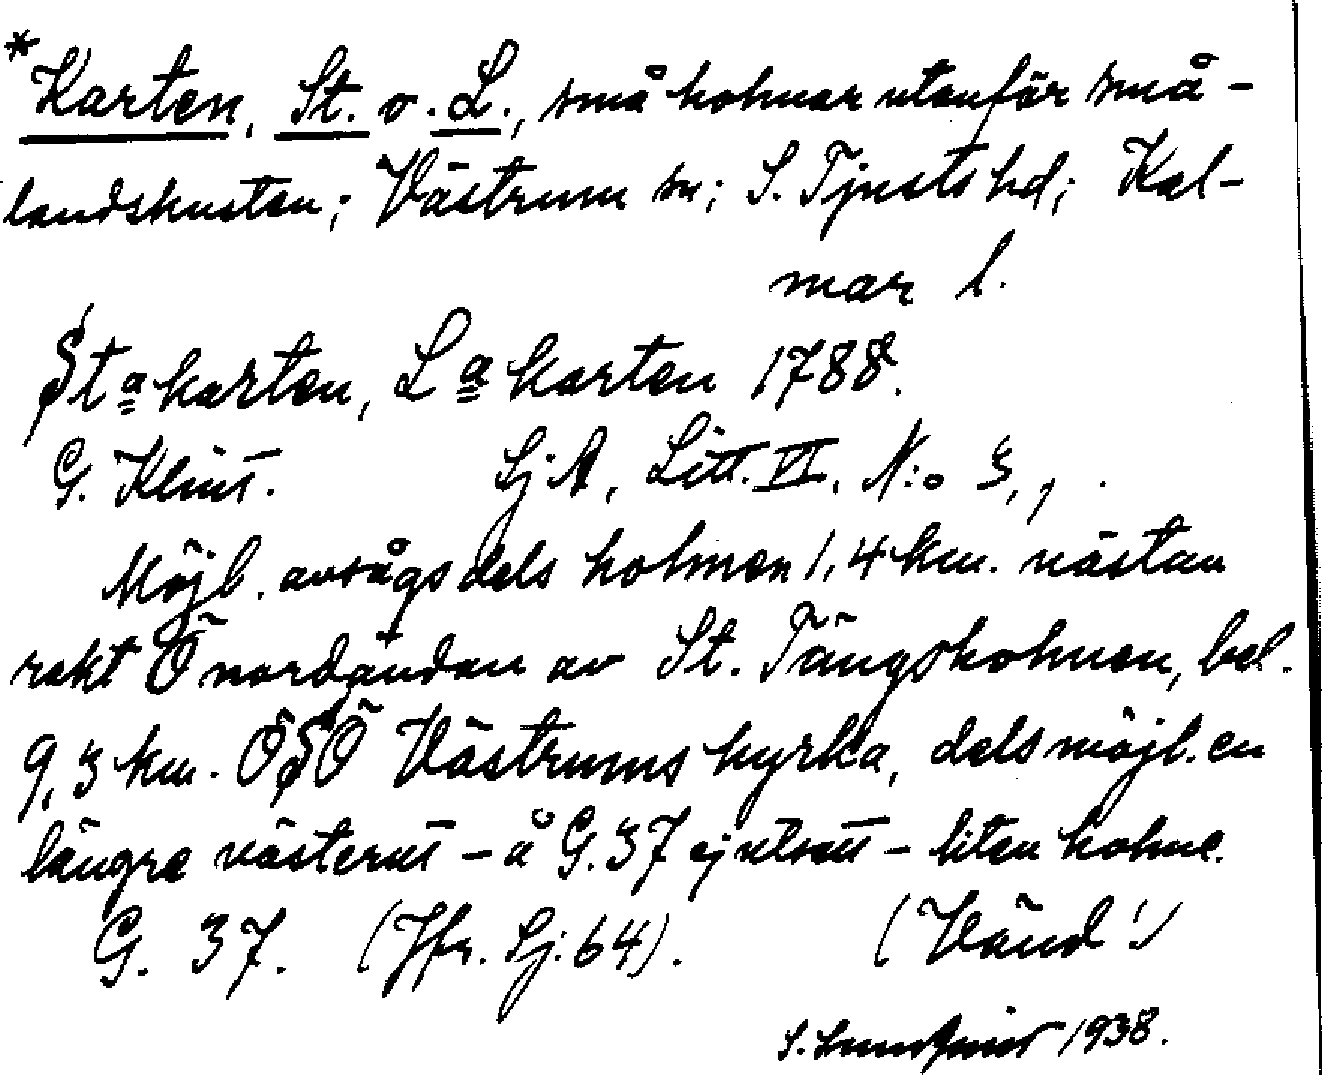 *Karten, St. o. L., små holmar utanför små-
landskusten; Västrum sn; S. Tjusts hd; Kal-
mar l.
Sta karten, La karten 1788.
G. Klint. SjA, Litt. VI. N:o 3,, .
Möjl. avsågs dels holmen 1,4 km. nästan
rakt Ö nordändan av St. Tängsholmen, bel.
9,3 km. ÖSÖ Västrums kyrka, dels möjl. en
längre västerut – å G. 37 ej utsatt – liten holme.
G. 37. (Jfr. Sj: 64). (Vänd!)
S. Lundqvist 1938.